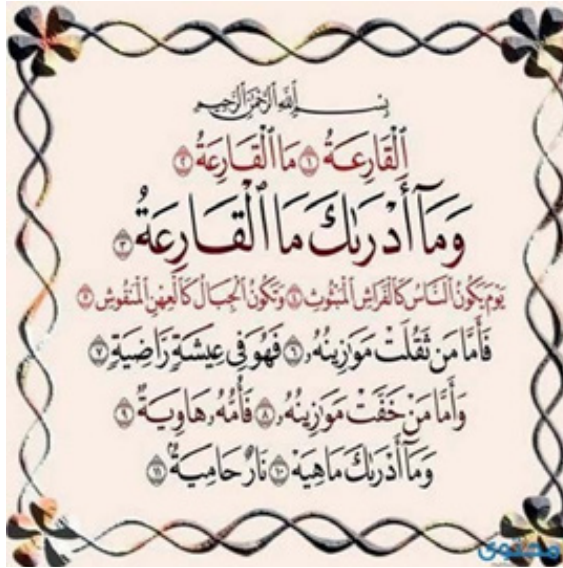 بِسْمِ اللَّهِ الرَّحْمَٰنِ الرَّحِيمِ
ٱلْقَارِعَةُ ١ مَا ٱلْقَارِعَةُ ٢
وَمَآ أَدْرَىٰكَ مَا ٱلْقَارِعَةُ ٣
يَوْمَ يَكُونُ ٱلنَّاسُ كَٱلْفَرَاشِ ٱلْمَبْثُوثِ ٤ وَتَكُونُ ٱلْجِبَالُ كَٱلْعِهْنِ ٱلْمَنفُوشِ ٥
فَأَمَّا مَن ثَقُلَتْ مَوَٰزِينُهُۥ ٦ فَهُوَ فِى عِيشَةٍ رَّاضِيَةٍ ٧
وَأَمَّا مَنْ خَفَّتْ مَوَٰزِينُهُۥ ٨ فَأُمُّهُۥ هَاوِيَةٌ ٩
وَمَآ أَدْرَىٰكَ مَا هِيَهْ ١٠ نَارٌ حَامِيَةٌۢ ١١
محتوى